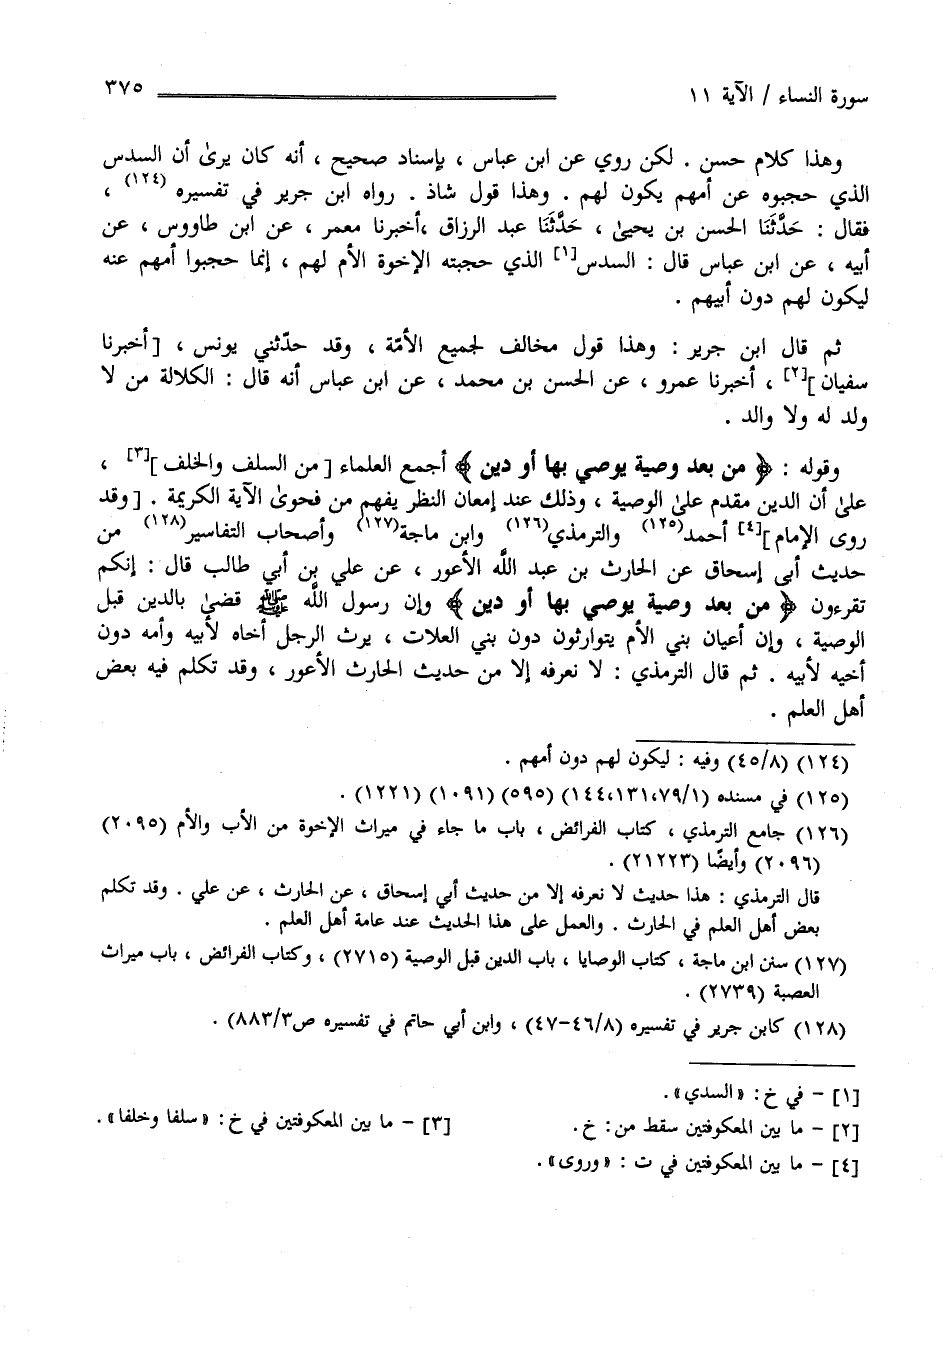 سورة النساء / الآية ١١
٣٧٥
وهذا كلام حسن . لكن روي عن ابن عباس ، بإسناد صحيح ، أنه كان يرىٰ أن السدس
الذي حجبوه عن أمهم يكون لهم . وهذا قول شاذ . رواه ابن جرير في تفسيره (١٢٤) ،
فقال : حَدَّثَنَا الحسن بن يحيىٰ ، حَدَّثَنَا عبد الرزاق ،أخبرنا معمر ، عن ابن طاووس ، عن
أبيه ، عن ابن عباس قال : السدس[١] الذي حجبته الإخوة الأم لهم ، إنما حجبوا أمهم عنه
ليكون لهم دون أبيهم .
ثم قال ابن جرير : وهذا قول مخالف لجميع الأمّة ، وقد حدّثني يونس ، [أخبرنا
سفيان][٢] ، أخبرنا عمرو ، عن الحسن بن محمد ، عن ابن عباس أنه قال : الكلالة من لا
ولد له ولا والد .
وقوله : ﴿ من بعد وصية يوصي بها أو دين ﴾ أجمع العلماء [من السلف والخلف][٣] ،
علىٰ أن الدين مقدم علىٰ الوصية ، وذلك عند إمعان النظر يفهم من فحوىٰ الآية الكريمة . [وقد
روى الإمام][٤] أحمد(١٢٥) والترمذي(١٢٦) وابن ماجة(١٢٧) وأصحاب التفاسير(١٢٨) من
حديث أبي إسحاق عن الحارث بن عبد اللَّه الأعور ، عن علي بن أبي طالب قال : إنكم
تقرءون ﴿ من بعد وصية يوصي بها أو دين ﴾ وإن رسول اللَّه ﷺ قضىٰ بالدين قبل
الوصية ، وإن أعيان بني الأم يتوارثون دون بني العلات ، يرث الرجل أخاه لأبيه وأمه دون
أخيه لأبيه . ثم قال الترمذي : لا نعرفه إلا من حديث الحارث الأعور ، وقد تكلم فيه بعض
أهل العلم .
(١٢٤) (٤٥/٨) وفيه : ليكون لهم دون أمهم .
(١٢٥) في مسنده (٧٩/١،١٣١،١٤٤) (٥٩٥) (١٠٩١) (١٢٢١) .
(١٢٦) جامع الترمذي ، كتاب الفرائض ، باب ما جاء في ميراث الإخوة من الأب والأم (٢٠٩٥)
(٢٠٩٦) وأيضًا (٢١٢٢٣) .
قال الترمذي : هذا حديث لا نعرفه إلا من حديث أبي إسحاق ، عن الحارث ، عن علي . وقد تكلم
بعض أهل العلم في الحارث . والعمل على هذا الحديث عند عامة أهل العلم .
(١٢٧) سنن ابن ماجة ، كتاب الوصايا ، باب الدين قبل الوصية (٢٧١٥) ، وكتاب الفرائض ، باب ميراث
العصبة (٢٧٣٩) .
(١٢٨) كابن جرير في تفسيره (٤٦/٨-٤٧) ، وابن أبي حاتم في تفسيره ص٨٨٣/٣) .
[١] - في خ: «السدي».
[٢] - ما بين المعكوفتين سقط من: خ.
[٣] - ما بين المعكوفتين في خ: «سلفا وخلفا».
[٤] - ما بين المعكوفتين في ت : «وروى».